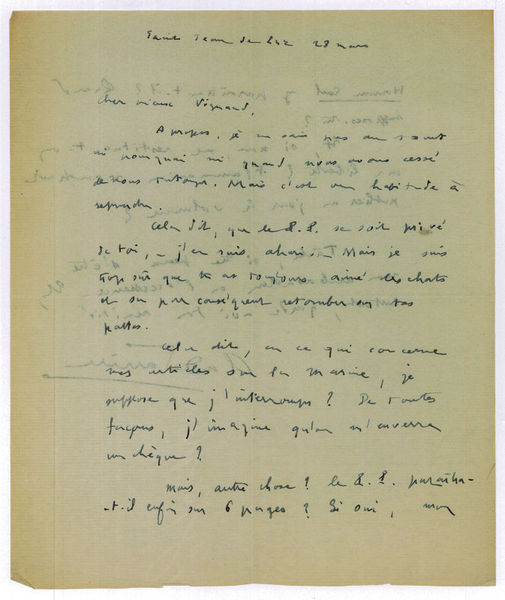 Saint Jean de Luz 23 mars
Cher vieux Vignaud,
A propos, je ne sais pas du tout
ni pourquoi ni quand, nous avons cessé
de nous tutoyer. Mais c'est une habitude à
reprendre.
Cela dit, que le P.P. se soit privé
de toi, – j'en suis ahuri – Mais je suis
trop sûr que tu as toujours aimé les chats
et su par conséquent retomber sur tes
pattes.
Cela dit, en ce qui concerne
mes articles sur la Marine, je
suppose que j'interromps ? De toutes
façons, j'imagine qu'on m'enverra
un chèque ?
Mais, autre chose ? le P.P. paraîtra-
-t-il enfin sur 6 pages ? Si oui, mon